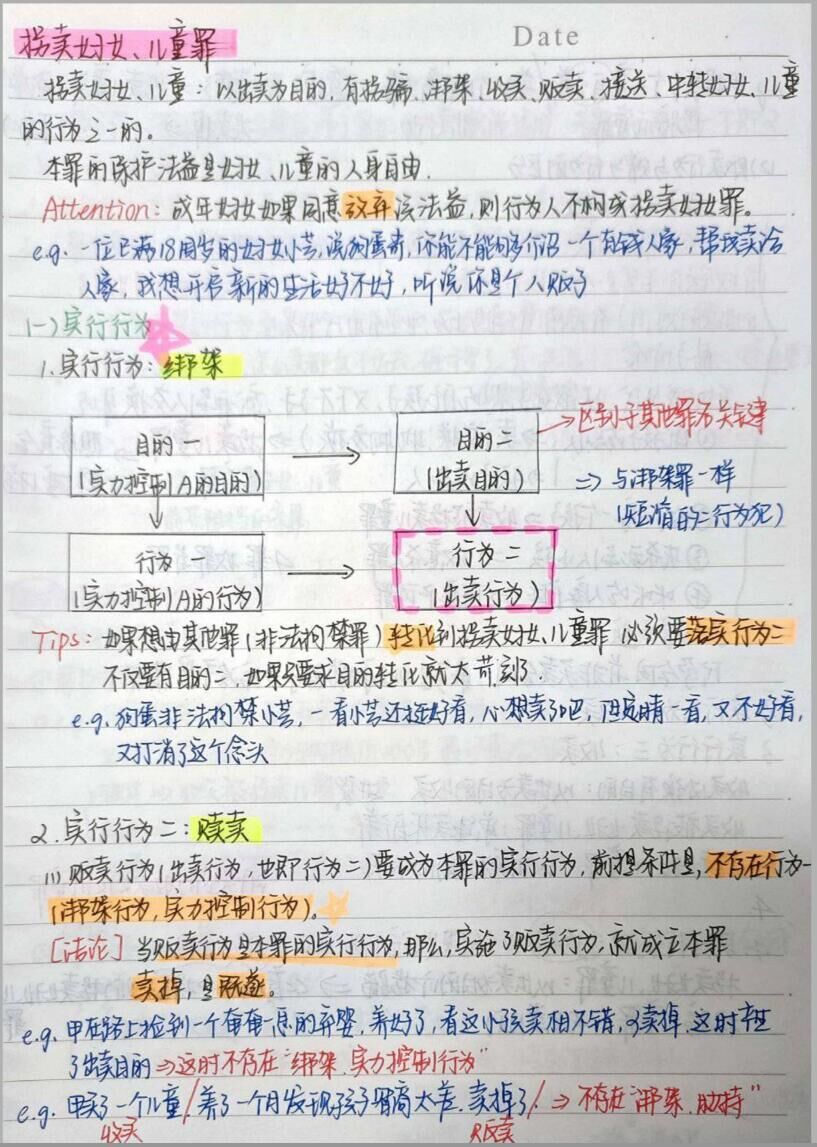 Date
拐卖妇女、儿童罪
拐卖妇女、儿童：以出卖为目的，有拐骗、绑架、收买、贩卖、接送、中转妇女、儿童
的行为之一的。
本罪的保护法益是妇女、儿童的人身自由.
Attention：成年妇女如果同意放弃该法益，则行为人不构成拐卖妇女罪。
e.g. 一位已满18周岁的妇女小芸，说狗蛋哥，你能不能够介绍一个有钱人家，帮我卖给
人家，我想开启新的生活好不好，听说你是个人贩子
(一)实行行为
1.实行行为：绑架
目的一
(实力控制A的目的)
目的二
(出卖目的)
→区别于其他罪名关键
⇒ 与绑架罪一样
(短缩的二行为犯)
行为一
(实力控制A的行为)
行为二
(出卖行为)
Tips：如果想由其他罪(非法拘禁罪)转化到拐卖妇女、儿童罪 必须要落实行为二
不仅要有目的二，如果只要求目的转化就太苛刻了.
e.g. 狗蛋非法拘禁小芸，一看小芸还挺好看，心想卖了吧，但定睛一看，又不好看，
又打消了这个念头
2.实行行为二：贩卖
(1)贩卖行为(出卖行为，也即行为二)要成为本罪的实行行为，前提条件是，不存在行为一
(绑架行为，实力控制行为)。
[结论] 当贩卖行为是本罪的实行行为，那么，实施了贩卖行为，就成立本罪
卖掉，是既遂。
e.g. 甲在路上捡到一个奄奄一息的弃婴，养好了，看这小孩卖相不错，卖掉.这时产生
了出卖目的⇒这时不存在"绑架.实力控制行为"
e.g. 甲买了一个儿童/养了一个月发现孩子智商太差.卖掉了/⇒不存在"绑架、劫持"
收买
贩卖